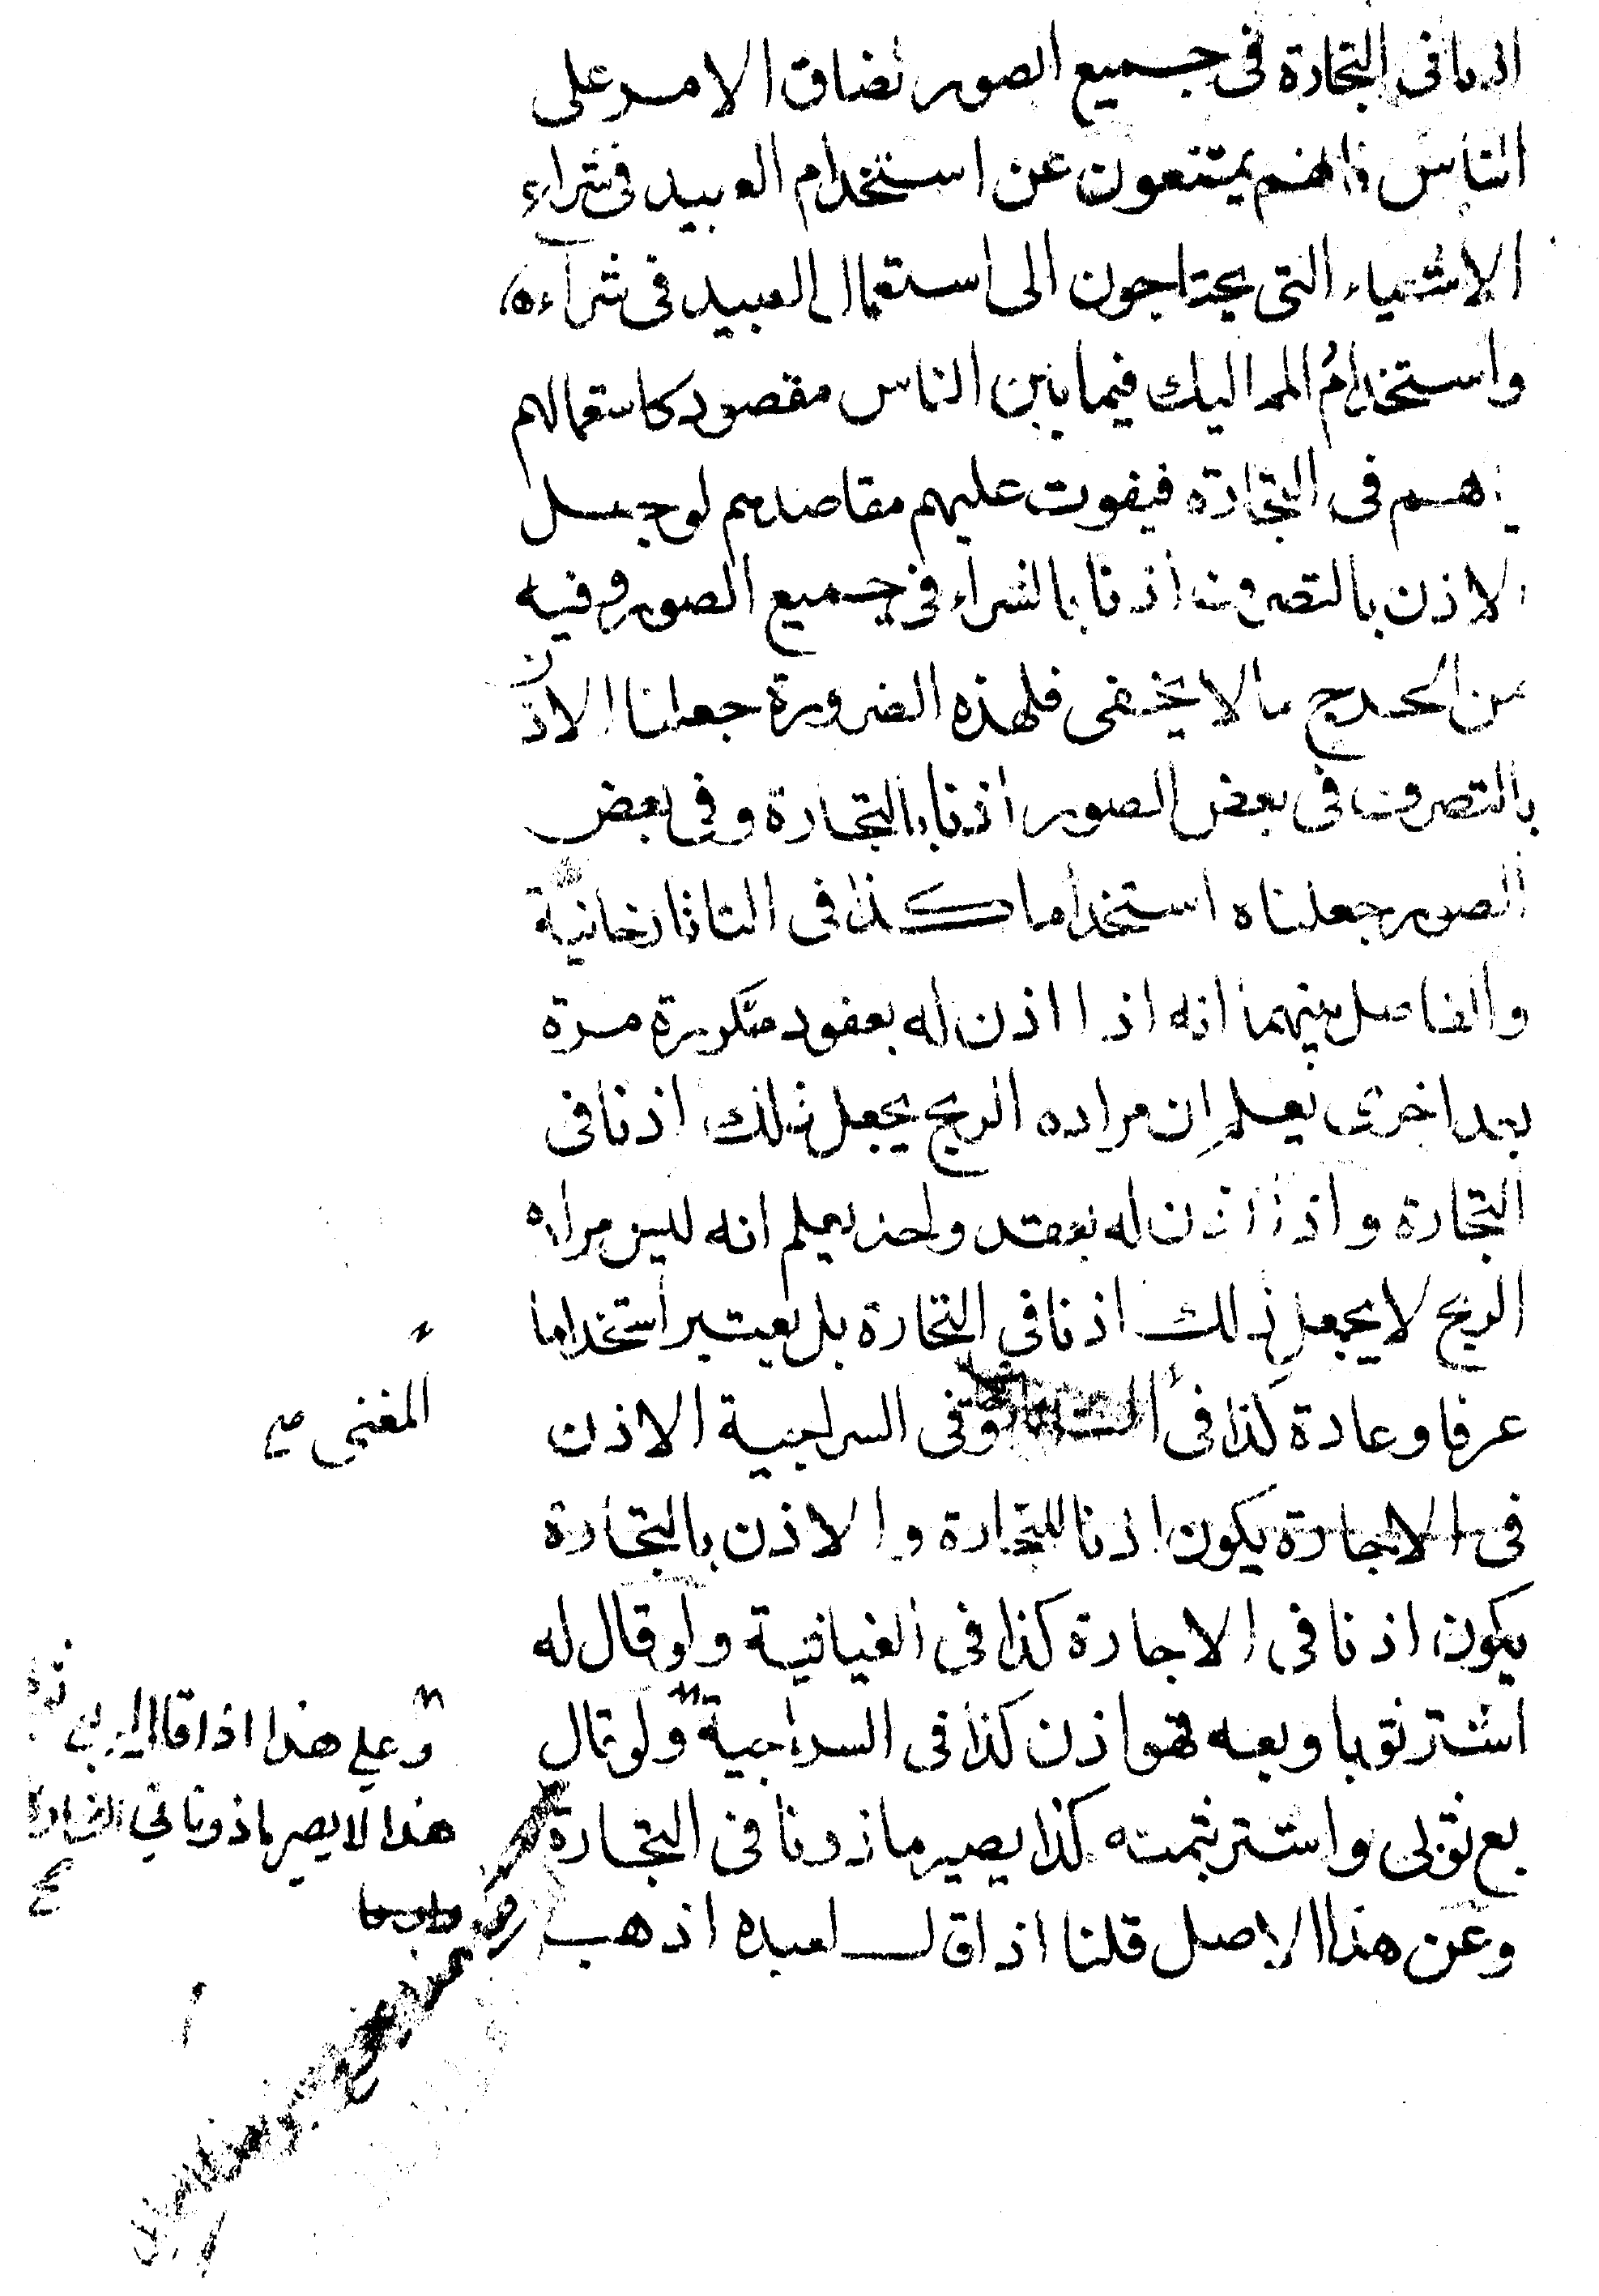 اذنا فى التجارة فى جميع الصور لضاق الامر على
الناس فانهم يمتنعون عن استخدام العبيد فى شراء
الاشياء التى يحتاجون الى استعمال العبيد فى شراءه
واستخدامُ المماليك فيما بين الناس مقصود كاستعمالهم
هم فى التجارة فيفوت عليهم مقاصدهم لو جعل
الاذن بالتصرف اذنا بالشراء فى جميع الصور وفيه
من الحرج ما لا يخفى فلهذه الضرورة جعلنا الاذن
بالتصرف فى بعض الصور اذنا بالتجارة وفى بعض
الصور جعلناه استخداما كذا فى التاتارخانية
والفاصل بينهما انه اذا اذن له بعقود متكررة مرة
بعد اخرى يعلم ان مراده الربح يجعل ذلك اذنا فى
التجارة واذا اذن له بعقد واحد يعلم انه ليس مراده
الربح لا يجعل ذلك اذنا فى التجارة بل يعتبر استخداما
عرفا وعادة كذا فى وفى السراجية الاذن
المغنى صح
فى الاجارة يكون اذنا للتجارة والاذن بالتجارة
يكون اذنا فى الاجارة كذا فى الغياثية ولو قال له
اشتر ثوبا وبعه فهو اذن كذا فى السراجية ولو قال
وعلى هذا اذا قال
بع ثوبى واشتر بثمنه كذا يصير ماذونا فى التجارة
هذا لا يصير ماذونا فى التجارة
صح
وعن هذا الاصل قلنا اذا قال لعبده اذهب